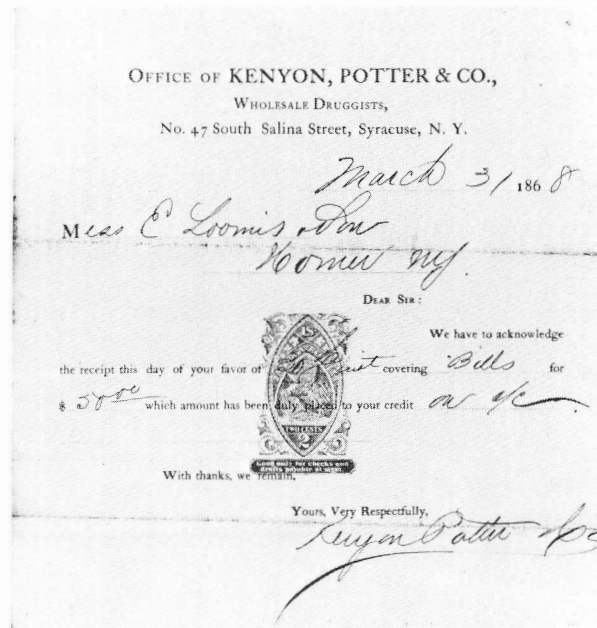 OFFICE OF KENYON, POTTER & CO.,
WHOLESALE DRUGGISTS,
No. 47 South Salina Street, Syracuse, N. Y.
March 31 1868
Mess E Loomis & Son
Homer NY.
DEAR SIR:
We have to acknowledge
the receipt this day of your favor of 30 covering Bills for
$ 50 00 which amount has been duly placed to your credit on a/c
U.S.
TWO CENTS
2
Good only for checks and
drafts payable at sight.
With thanks, we remain,
Yours, Very Respectfully,
Kenyon Potter & Co